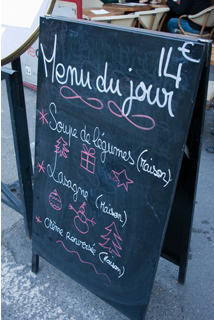 Menu du jour 14€
Soupe de légumes (maison)
Lasagne (maison)
Crème renversée (maison)